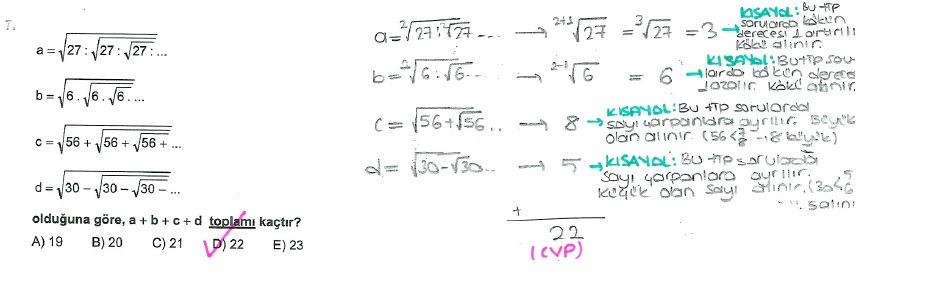 7.
a = √27 : √27 : √27 : ...
b = √6 . √6 . √6 . ...
c = √56 + √56 + √56 + ...
d = √30 − √30 − √30 − ...
olduğuna göre, a + b + c + d toplamı kaçtır?
A) 19 B) 20 C) 21 D) 22 E) 23
a = ²√27 : ²√27 ... → ²⁺¹√27 = ³√27 = 3
KISAYOL: Bu tip
sorularda kökün
derecesi 1 artırılıp
kökü alınır.
b = ²√6 . √6 ... → ²⁻¹√6 = 6
KISAYOL: Bu tip sou
larda kökün derece
azalır. Kökü alınır.
c = √56 + √56 .. → 8
KISAYOL: Bu tip sorularda
sayı çarpanlara ayrılır. Büyük
olan alınır. (56 < 7 - 8 büyük)
d = √30 − √30 ... → 5
KISAYOL: Bu tip sorulada
sayı çarpanlara ayrılır.
küçük olan sayı alınır. (30 < 5 6
+
22
(CVP)